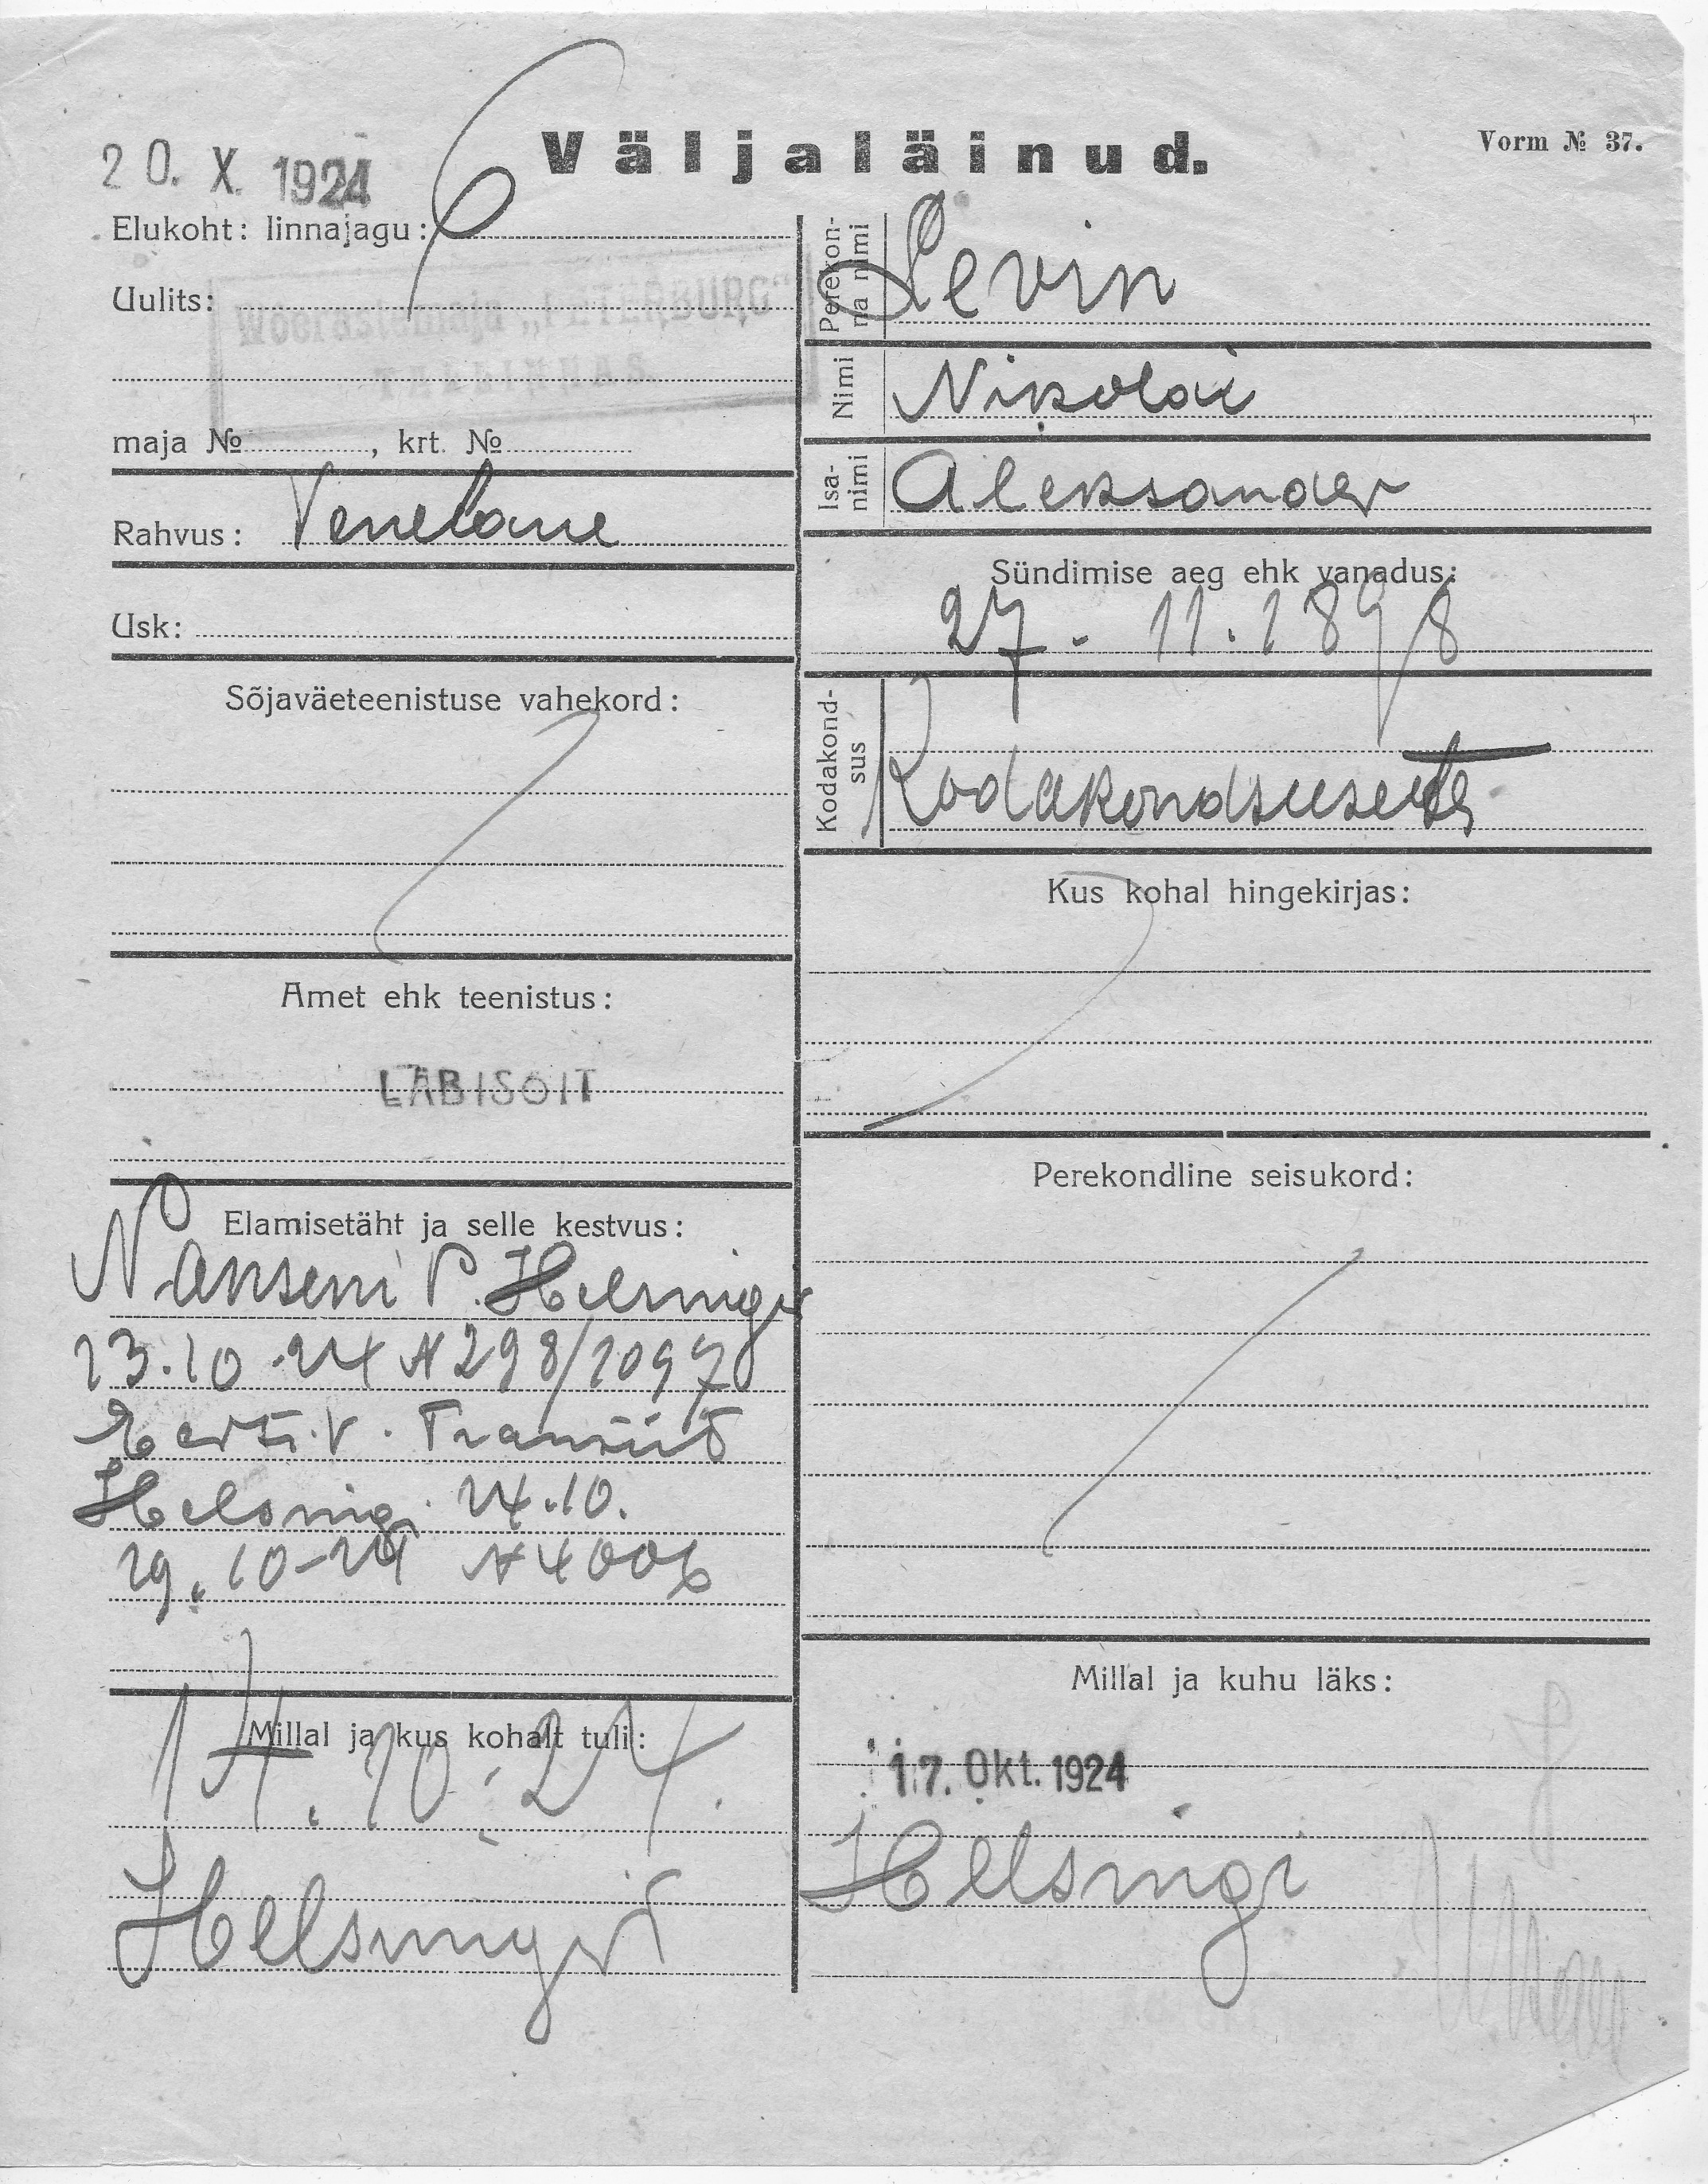 Väljaläinud.
Vorm № 37.
20. X. 1924
Elukoht: linnajagu:
Uulits:
Woerastemaja „PETERBURG“
TALLINNAS.
maja № , krt. №
Rahvus: Venelane
Usk:
Sõjaväeteenistuse vahekord:
Amet ehk teenistus:
LÄBISOIT
Elamisetäht ja selle kestvus:
Nanseni P. Helsingis
13.10.24 N 298/1097
Eesti. V. Transiit
Helsing. 14.10.
19.10-24 N 4006
Millal ja kus kohalt tuli:
17.10.24.
Helsingist
Perekonna nimi
Levin
Nimi
Nikolai
Isanimi
Aleksander
Sündimise aeg ehk vanadus:
27. 11. 1898
Kodakondsus
Kodakondsuseta
Kus kohal hingekirjas:
Perekondline seisukord:
Millal ja kuhu läks:
17. Okt. 1924
Helsingi